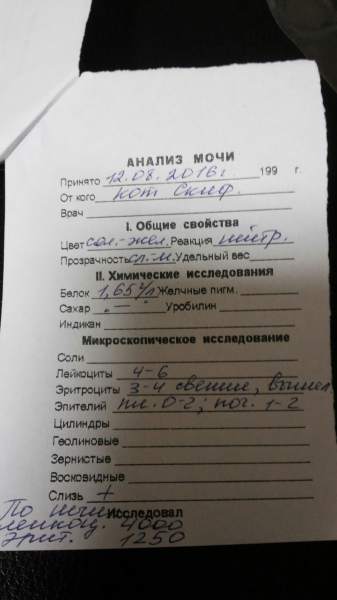 АНАЛИЗ МОЧИ
Принято 12.08.2016г 199 г.
От кого кот Скиф.
Врач
I. Общие свойства
Цвет сол.-жел. Реакция нейтр.
Прозрачность сл.-м. Удельный вес
II. Химические исследования
Белок 1,65 г/л Желчные пигм.
Сахар — Уробилин
Индикан
Микроскопическое исследование
Соли
Лейкоциты 4-6
Эритроциты 3-4 свежие, выщел
Эпителий пл. 0-2; поч. 1-2
Цилиндры
Геолиновые
Зернистые
Восковидные
Слизь +
По Исследовал
лейкоц. 4000
Эрит. 1250